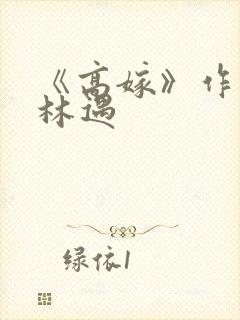 《高嫁》作
林遇
绿依1